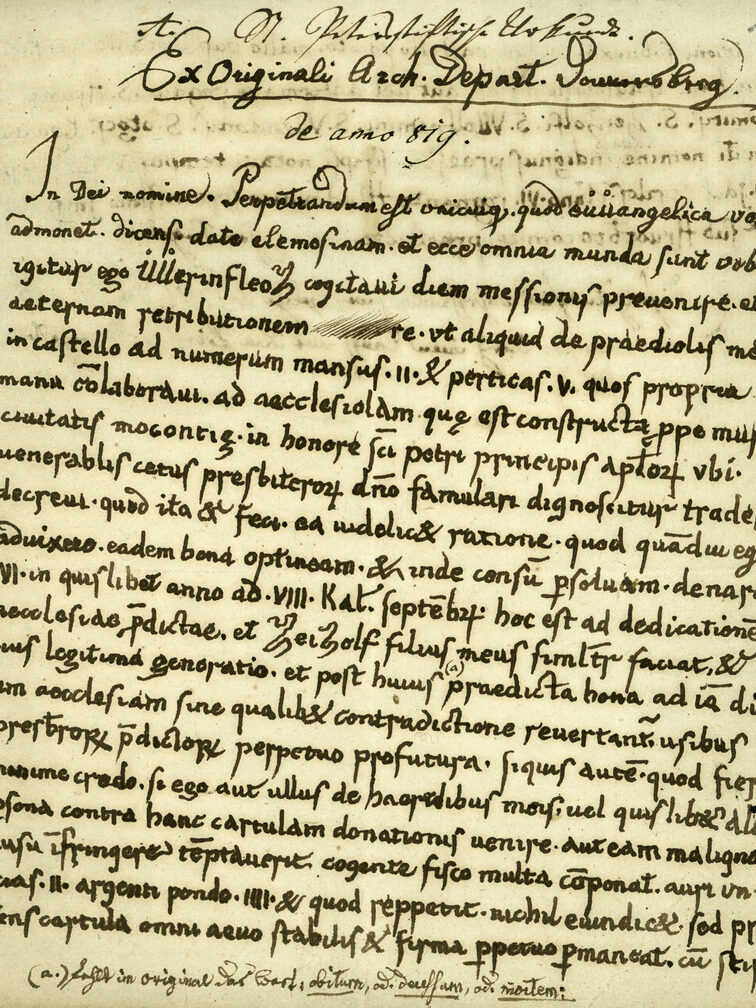 A. St. Peterstiftische Urkunde.
Ex Originali Arch. Depart. Donnersberg.
de anno 819.
In Dei nomine. Perpetrandum est unicuiq. quod euuangelica vo
admonet. dicens. date elemosinam. et ecce omnia munda sunt vob
igitur ego cogitaui diem messionis prevenire. e
aeternam retributionem re. vt aliquid de praediolis me
in castello ad numerum mansus. II. & perticas. V. quos propria
manu cōlaboraui. ad aecclesiolam quę est constructa ꝑpe mur
ciuitatis mocontię. in honore sc̄i petri principis apl̄oꝝ vbi.
uenerabilis cetus presbiteroꝝ dn̄o famulari dignoscitur trade
decreui. quod ita & feci. ea uidelic& ratione. quod quādiu eg
aduixero. eadem bona optineam. & inde consū ꝑsoluam. denar
VI. in quislibet anno ad. VIII. Kał. septēbꝝ. hoc est ad dedicatione
aecclesiae p̄dictae. et filius meus similt̄r faciat, &
ius legitima generatio. et post huius (a) praedicta bona ad iā di
am aecclesiam sine qualib& contradictione revertant̄. usibus
presbr̄oꝝ p̄dictoꝝ perpetuo profutura. siquis autē. quod fier
minime credo. si ego aut ullus de haeredibus meis. uel quislib& al
ersona contra hanc cartulam donationis venire. aut eam maligno
usu īfringere tēptauerit. cogente fisco multa cōponat. auri un
cias. II. argenti pondo. IIII. & quod reppetit. nichil euindic&. sed pr
ens cartula omni aevo stabilis & firma ꝑpetuo ꝑmaneat. cū stip
(a.) Fehlt in original das Wort: obitum, od. decessum, od. mortem: